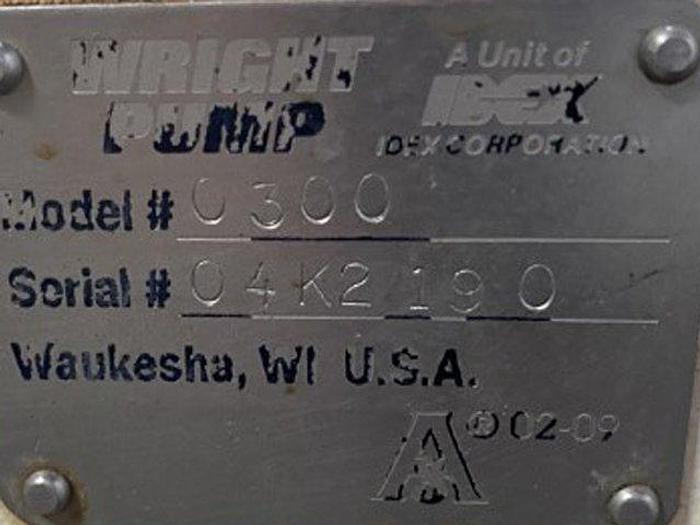 WRIGHT PUMP
A Unit of
IDEX
IDEX CORPORATION
Model # 0300
Serial # 04K2 190
Waukesha, WI U.S.A.
A ® 02-09